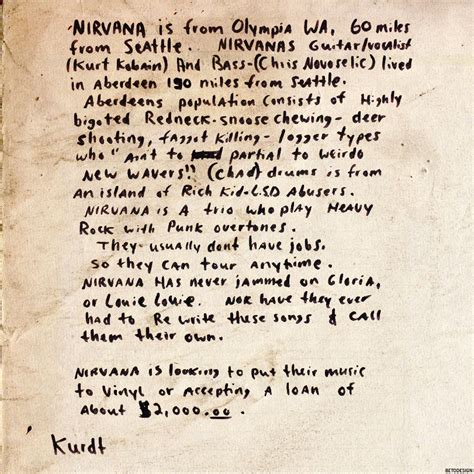 NIRVANA is from Olympia WA, 60 miles
from Seattle. NIRVANAS Guitar/vocalist
(Kurt Kobain) And Bass-(Chris Novoselic) lived
in Aberdeen 190 miles from Seattle.
Aberdeens population consists of Highly
bigoted Redneck-snoose chewing- deer
shooting, faggot killing- logger types
who "ain't to partial to weirdo
NEW WAVERS!! (chad) drums is from
An island of Rich Kid-LSD Abusers.
NIRVANA is A trio who play HEAVY
Rock with Punk overtones.
They usually dont have jobs.
so they can tour Anytime.
NIRVANA HAS never jammed on Gloria,
or Louie Louie. Nor have they ever
had to Re write these songs & CAll
them their own.
NIRVANA is looking to put their music
to vinyl or Accepting A loan of
About $2,000.00.
Kurdt
BETODESIGN